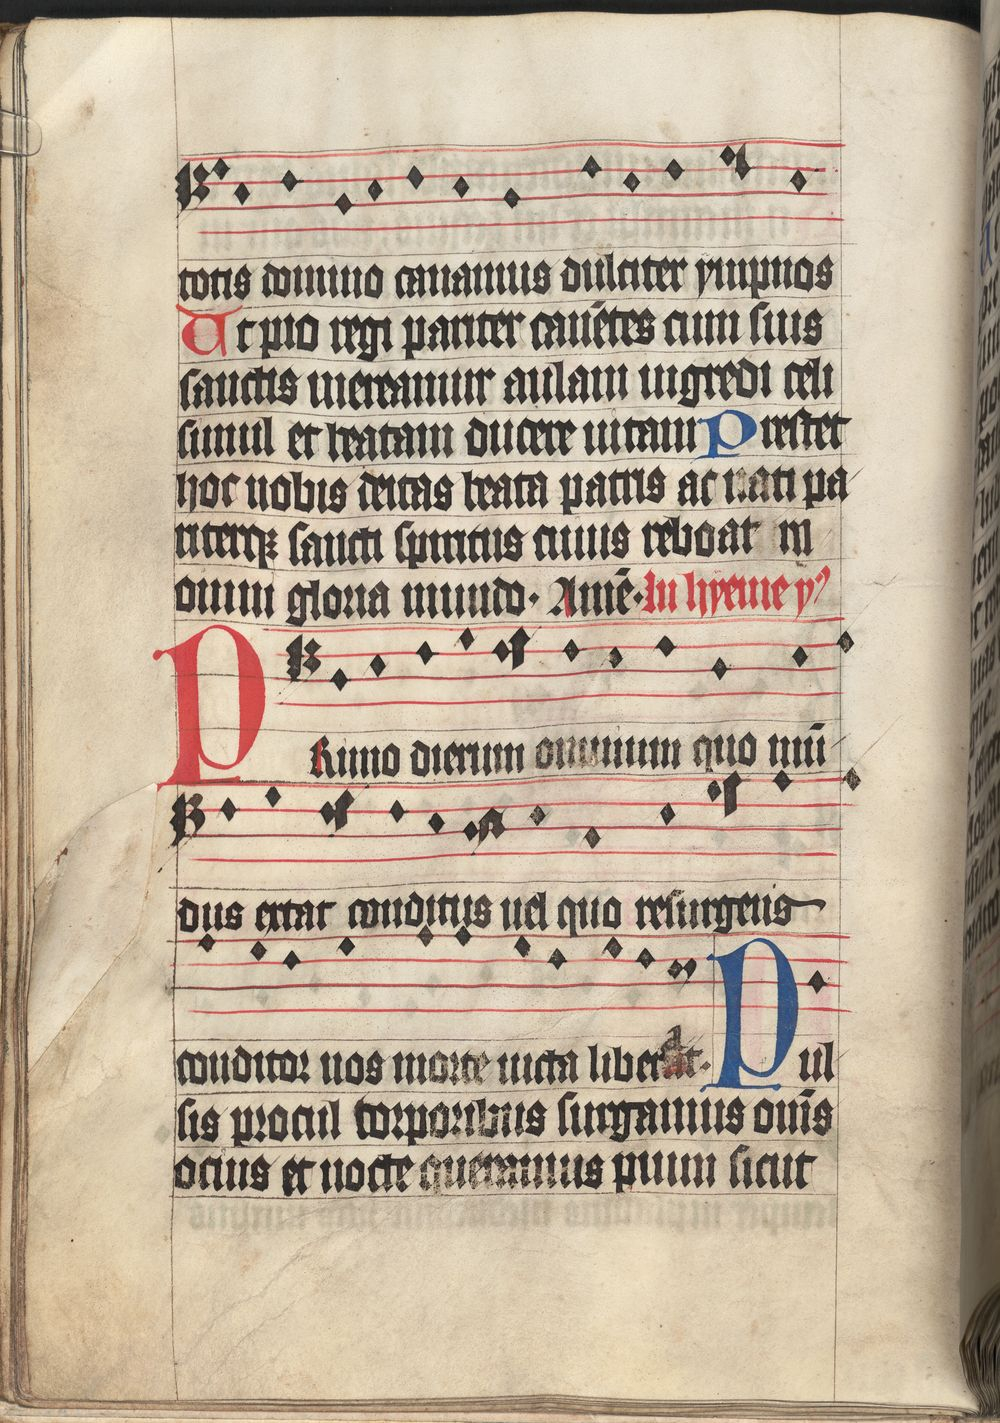 totis domino canamus dulciter ympnos
Ut pio regi pariter canētes cum suis
sanctis mereamur aulam ingredi celi
simul et beatam ducere uitam Prestet
hoc nobis deitas beata patris ac nati pa
riterqꝫ sancti spiritus cuius reboat in
omni gloria mundo. Amē. In hyeme yꝰ
PRimo dierum omnium quo mū
dus extat conditus uel quo resurgens
conditor nos morte uicta liberat. Pul
sis procul torporibus surgamus om̄s
ocius et nocte queramus pium sicut